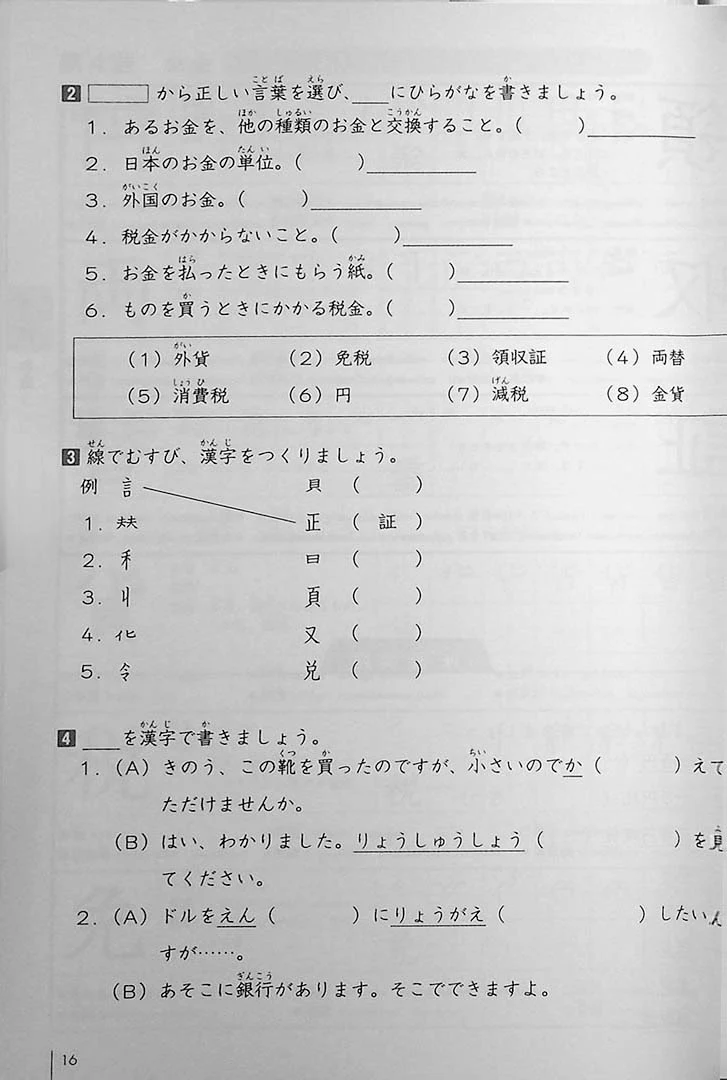 2 から正しい言葉を選び、___にひらがなを書きましょう。
1. あるお金を、他の種類のお金と交換すること。( )________
2. 日本のお金の単位。( )________
3. 外国のお金。( )________
4. 税金がかからないこと。( )________
5. お金を払ったときにもらう紙。( )________
6. ものを買うときにかかる税金。( )________
(1) 外貨 (2) 免税 (3) 領収証 (4) 両替
(5) 消費税 (6) 円 (7) 減税 (8) 金貨
3 線でむすび、漢字をつくりましょう。
例 言 貝 ( )
1. 㚘 正 ( 証 )
2. 禾 日 ( )
3. 丩 頁 ( )
4. 化 又 ( )
5. 令 兌 ( )
4 ___を漢字で書きましょう。
1. (A) きのう、この靴を買ったのですが、小さいのでか ( ) えて
ただけませんか。
(B) はい、わかりました。りょうしゅうしょう ( ) を見
てください。
2. (A) ドルをえん ( ) にりょうがえ ( ) したいん
すが……。
(B) あそこに銀行があります。そこでできますよ。
16